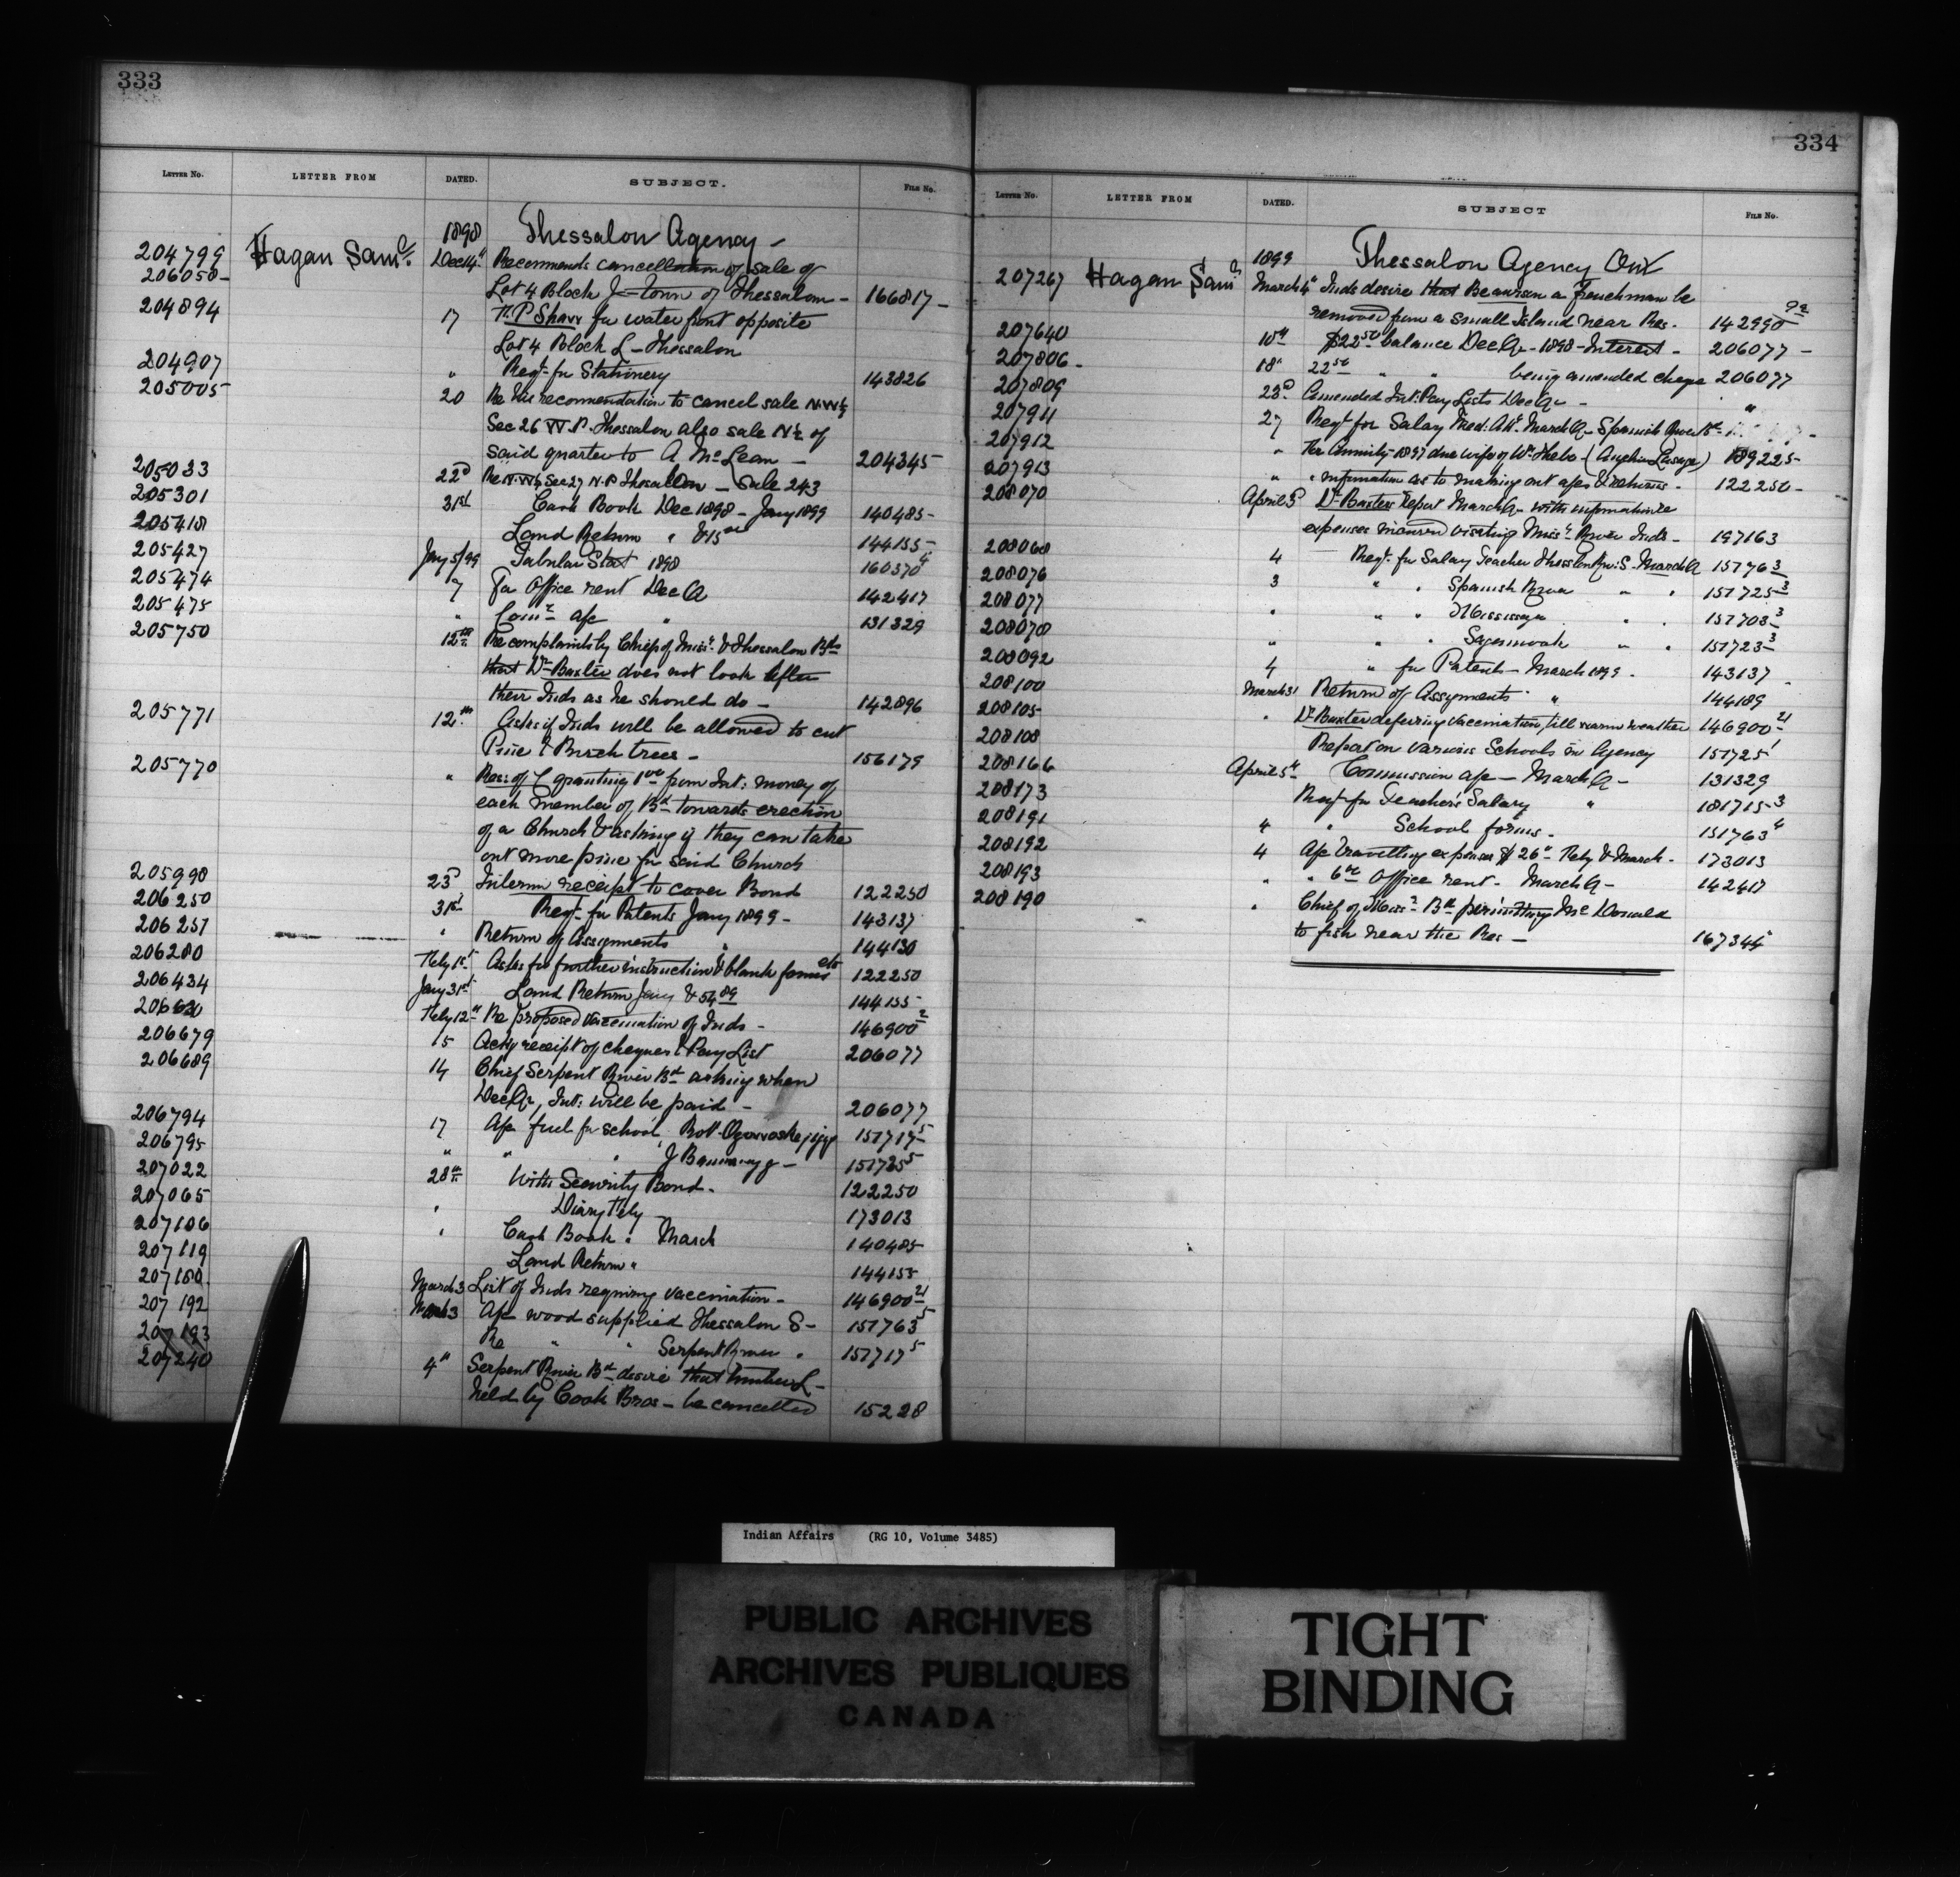 333
LETTER NO. LETTER FROM DATED. SUBJECT. FILE NO.
1898 Thessalon Agency -
204799 Hagan Saml. Dec 14" Recommends cancellation of sale of
206050 - Lot 4 Block J - Town of Thessalon - 166817 -
204894 17 T. P Shaw for water front opposite
Lot 4 Block L - Thessalon
204907 " Reqt. for Stationery 143826
205005 20 Re his recommendation to cancel sale N.W¼
Sec 26 W.P. Thessalon also sale N½ of
said quarter to A McLean - 204345 -
205033 22d Re N.W¼ Sec 27 N.P Thessalon - Sale 243
205301 31st Cash Book Dec 1898 - Jany 1899 140485 -
205418 Land Return " &
144155 -
205427 Jany 5/99 Tabular Stat 1898 160370
205474 7 For Office rent Dec Q 142417
205475 " Comn a/c " 131329
205750 12th Re complaints by Chief of Miss. & Thessalon Bds
that Dr Baxter does not look after
their Inds as he should do - 142896
205771 12th Asks if Inds will be allowed to cut
Pine & Birch trees - 156179
205770 " Res: of C granting 1.00 from Int: money of
each member of Bd towards erection
of a Church & asking if they can take
out more pine for said Church
205990 23d Interim receipt to cover Bond 122250
206250 31st Reqt. for Patents Jany 1899 - 143137
206251 " Return of Assignments " 144130
206280 Feby 1st Asks for further instruction & blank forms etc 122250
206434 Jany 31st Land Return Jany & 54.89 144155 -
206630 Feby 12" Re proposed vaccination of Inds - 146900 2
206679 15 Ackg receipt of cheques & Pay List 206077
206689 14 Chief Serpent River Bd asking when
Dec Qr, Int: will be paid - 206077
206794 17 A/c fuel for school, Robt 151717 5
206795 " " " J 151725 5
207022 28th With Security Bond - 122250
207065 " Diary Feby 173013
207106 " Cash Book " March 140485
207119 Land Return " 144155
207180 March 3 List of Inds requiring vaccination - 146900 21
207192 March 3 A/c wood supplied Thessalon S - 151763 5
207193 Re " " Serpent River " 151717 5
207240 4" Serpent River Bd desire that timber L -
held by Cook Bros - be cancelled 15228
334
LETTER NO. LETTER FROM DATED. SUBJECT FILE NO.
1899 Thessalon Agency Ont
207267 Hagan Saml March 4" Inds desire that a frenchman be
removed from a small Island near Res. 142990
207640 10th $22.50 balance Dec Qr - 1898 - Interest - 206077 -
207806 - 18" 22.50 " " being amended cheque 206077
207809 23d Amended Int: Pay Lists Dec Qr - "
207911 27 Reqt for Salary Med: Att. March Q - Spanish River Bd -
207912 " Re Annuity - 1897 due wife of Wm 189225 -
207913 " " information as to making out a/cs & returns - 122250 -
208070 April 3d Dr Baxters report March Q - with information re
expenses incurred visiting Miss. River Inds - 197163
208068 4 Reqt. for Salary Teacher Thessalon S - March Q 151763
208076 3 " Spanish River " " 151725 3
208077 " " " Mississaga " " 151703 3
208078 " " Sagamook " " 151723 3
208092 4 " for Patents - March 1899 - 143137
208100 March 31 Return of Assignments " 144189
208105 " Dr Baxter deferring vaccination, till warm weather 146900 21
208108 Report on various Schools in Agency 151725 1
208166 April 5th Commission a/c - March Q - 131329
208173 Reqt for Teacher's Salary " 181715 3
208191 4 " School forms - 151763 4
208192 4 A/c travelling expenses $26 " Feby & March - 173013
208193 " " 6.00 Office rent - March Q - 142417
208190 " Chief of Miss. Bd permitting McDonald
to fish near the Res - 167344
Indian Affairs (RG 10, Volume 3485)
PUBLIC ARCHIVES
ARCHIVES PUBLIQUES
CANADA
TIGHT
BINDING